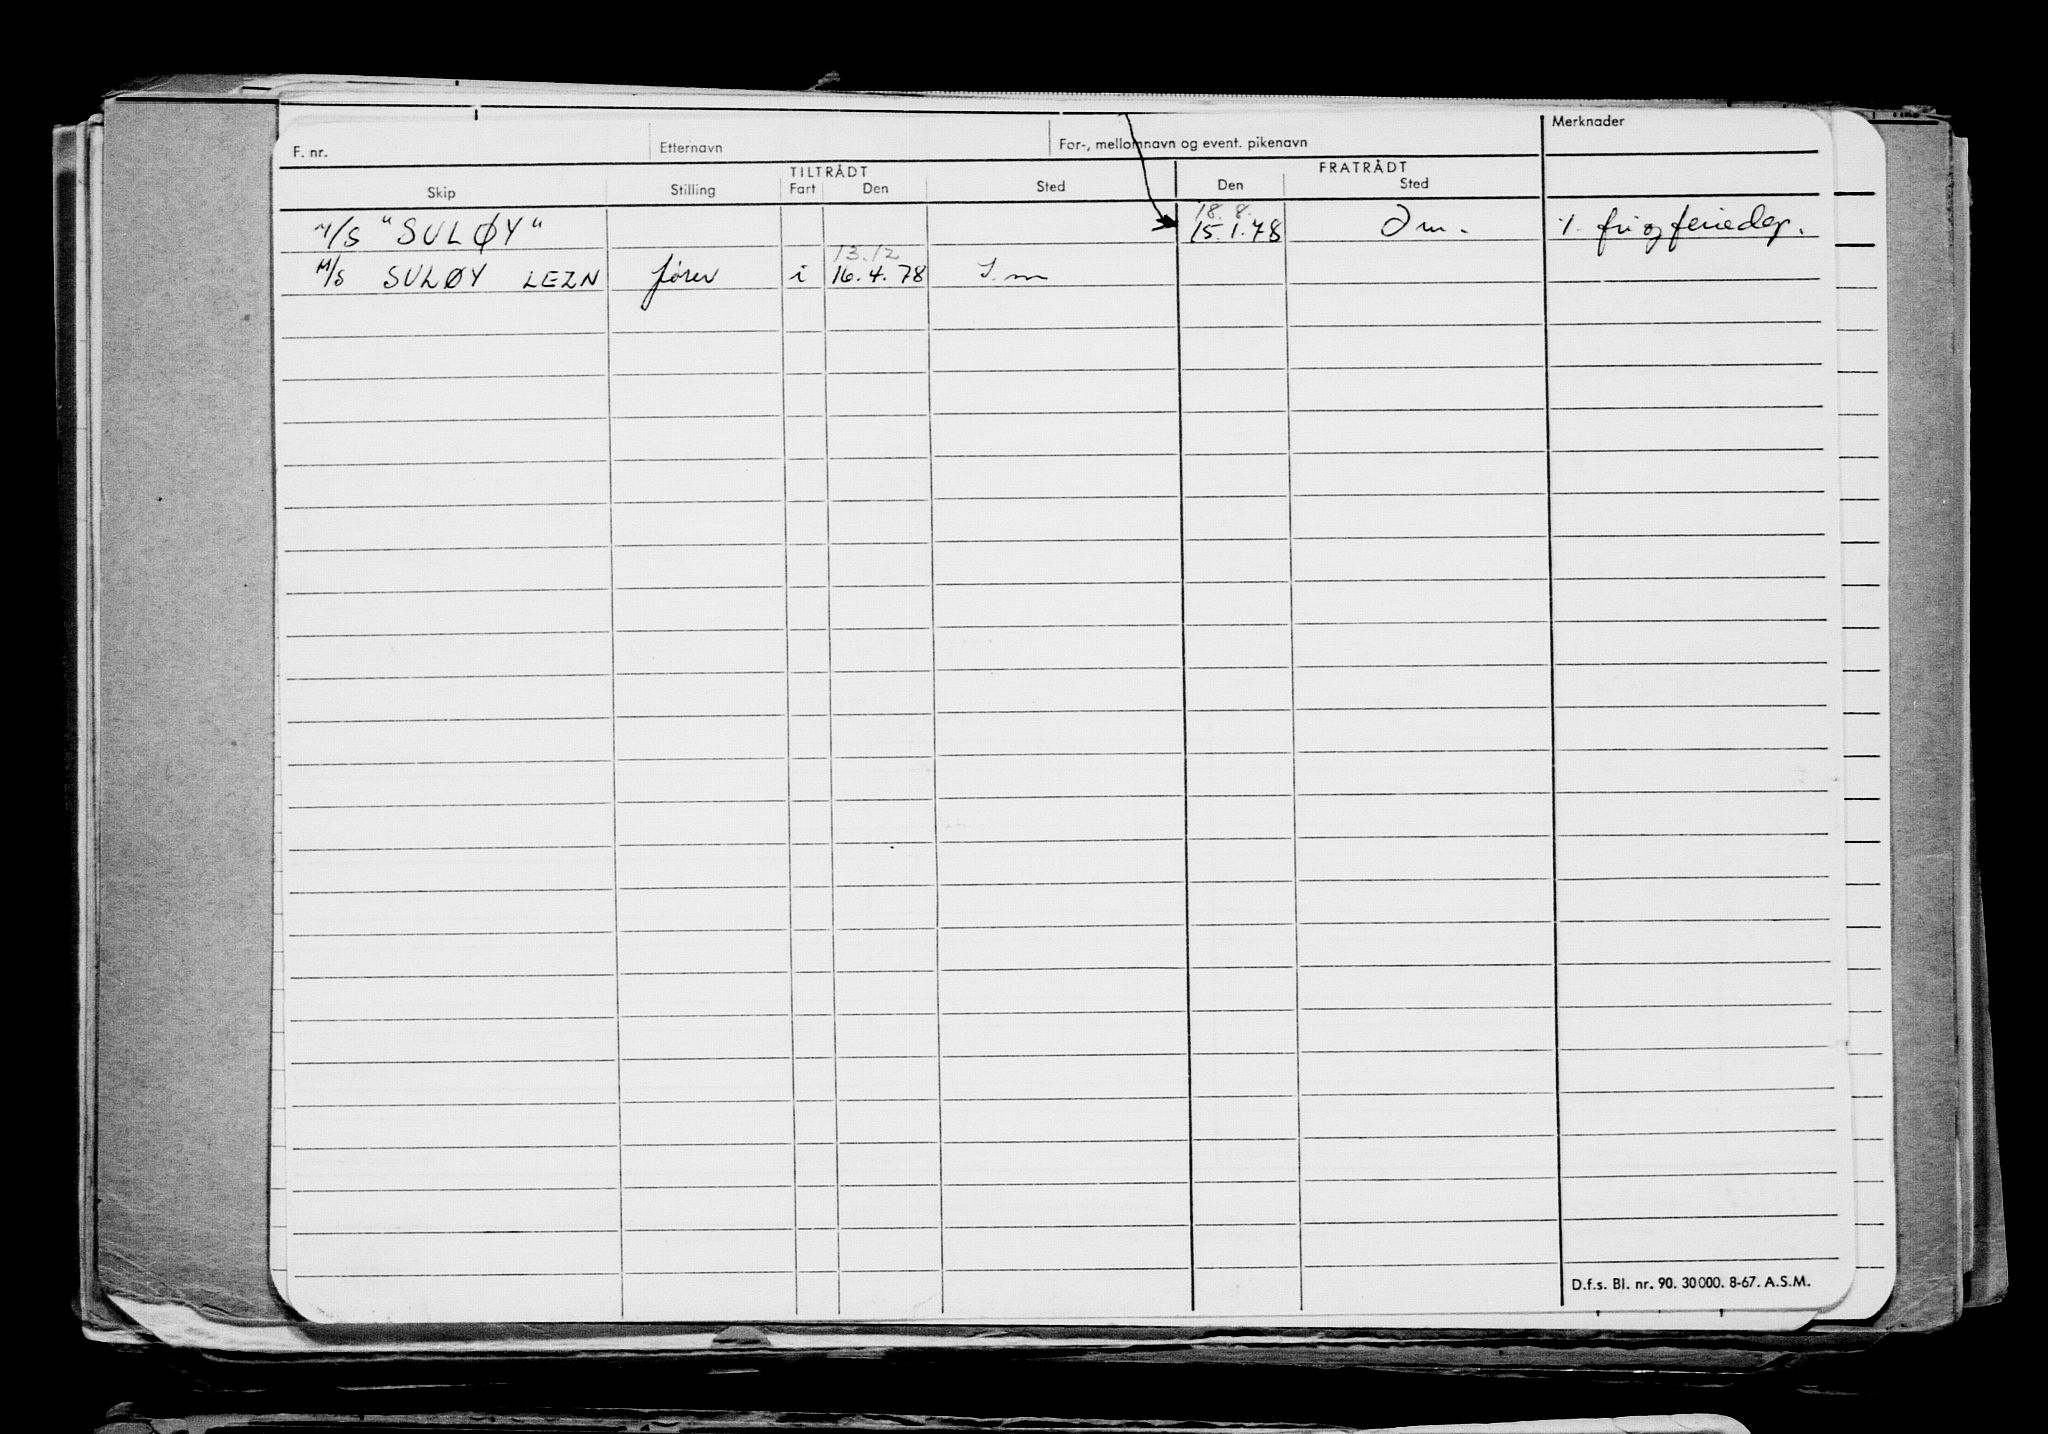 F. nr. Etternavn For-, mellomnavn og event. pikenavn Merknader
TILTRÅDT FRATRÅDT
Skip Stilling Fart Den Sted Den Sted
18. 8.
M/S "SULØY" 15.1.78 Om. %. fri og feriedgr.
13.12
M/S SULØY LEZN fører i 16.4.78
D.f.s. Bl. nr. 90. 30 000. 8-67. A.S.M.